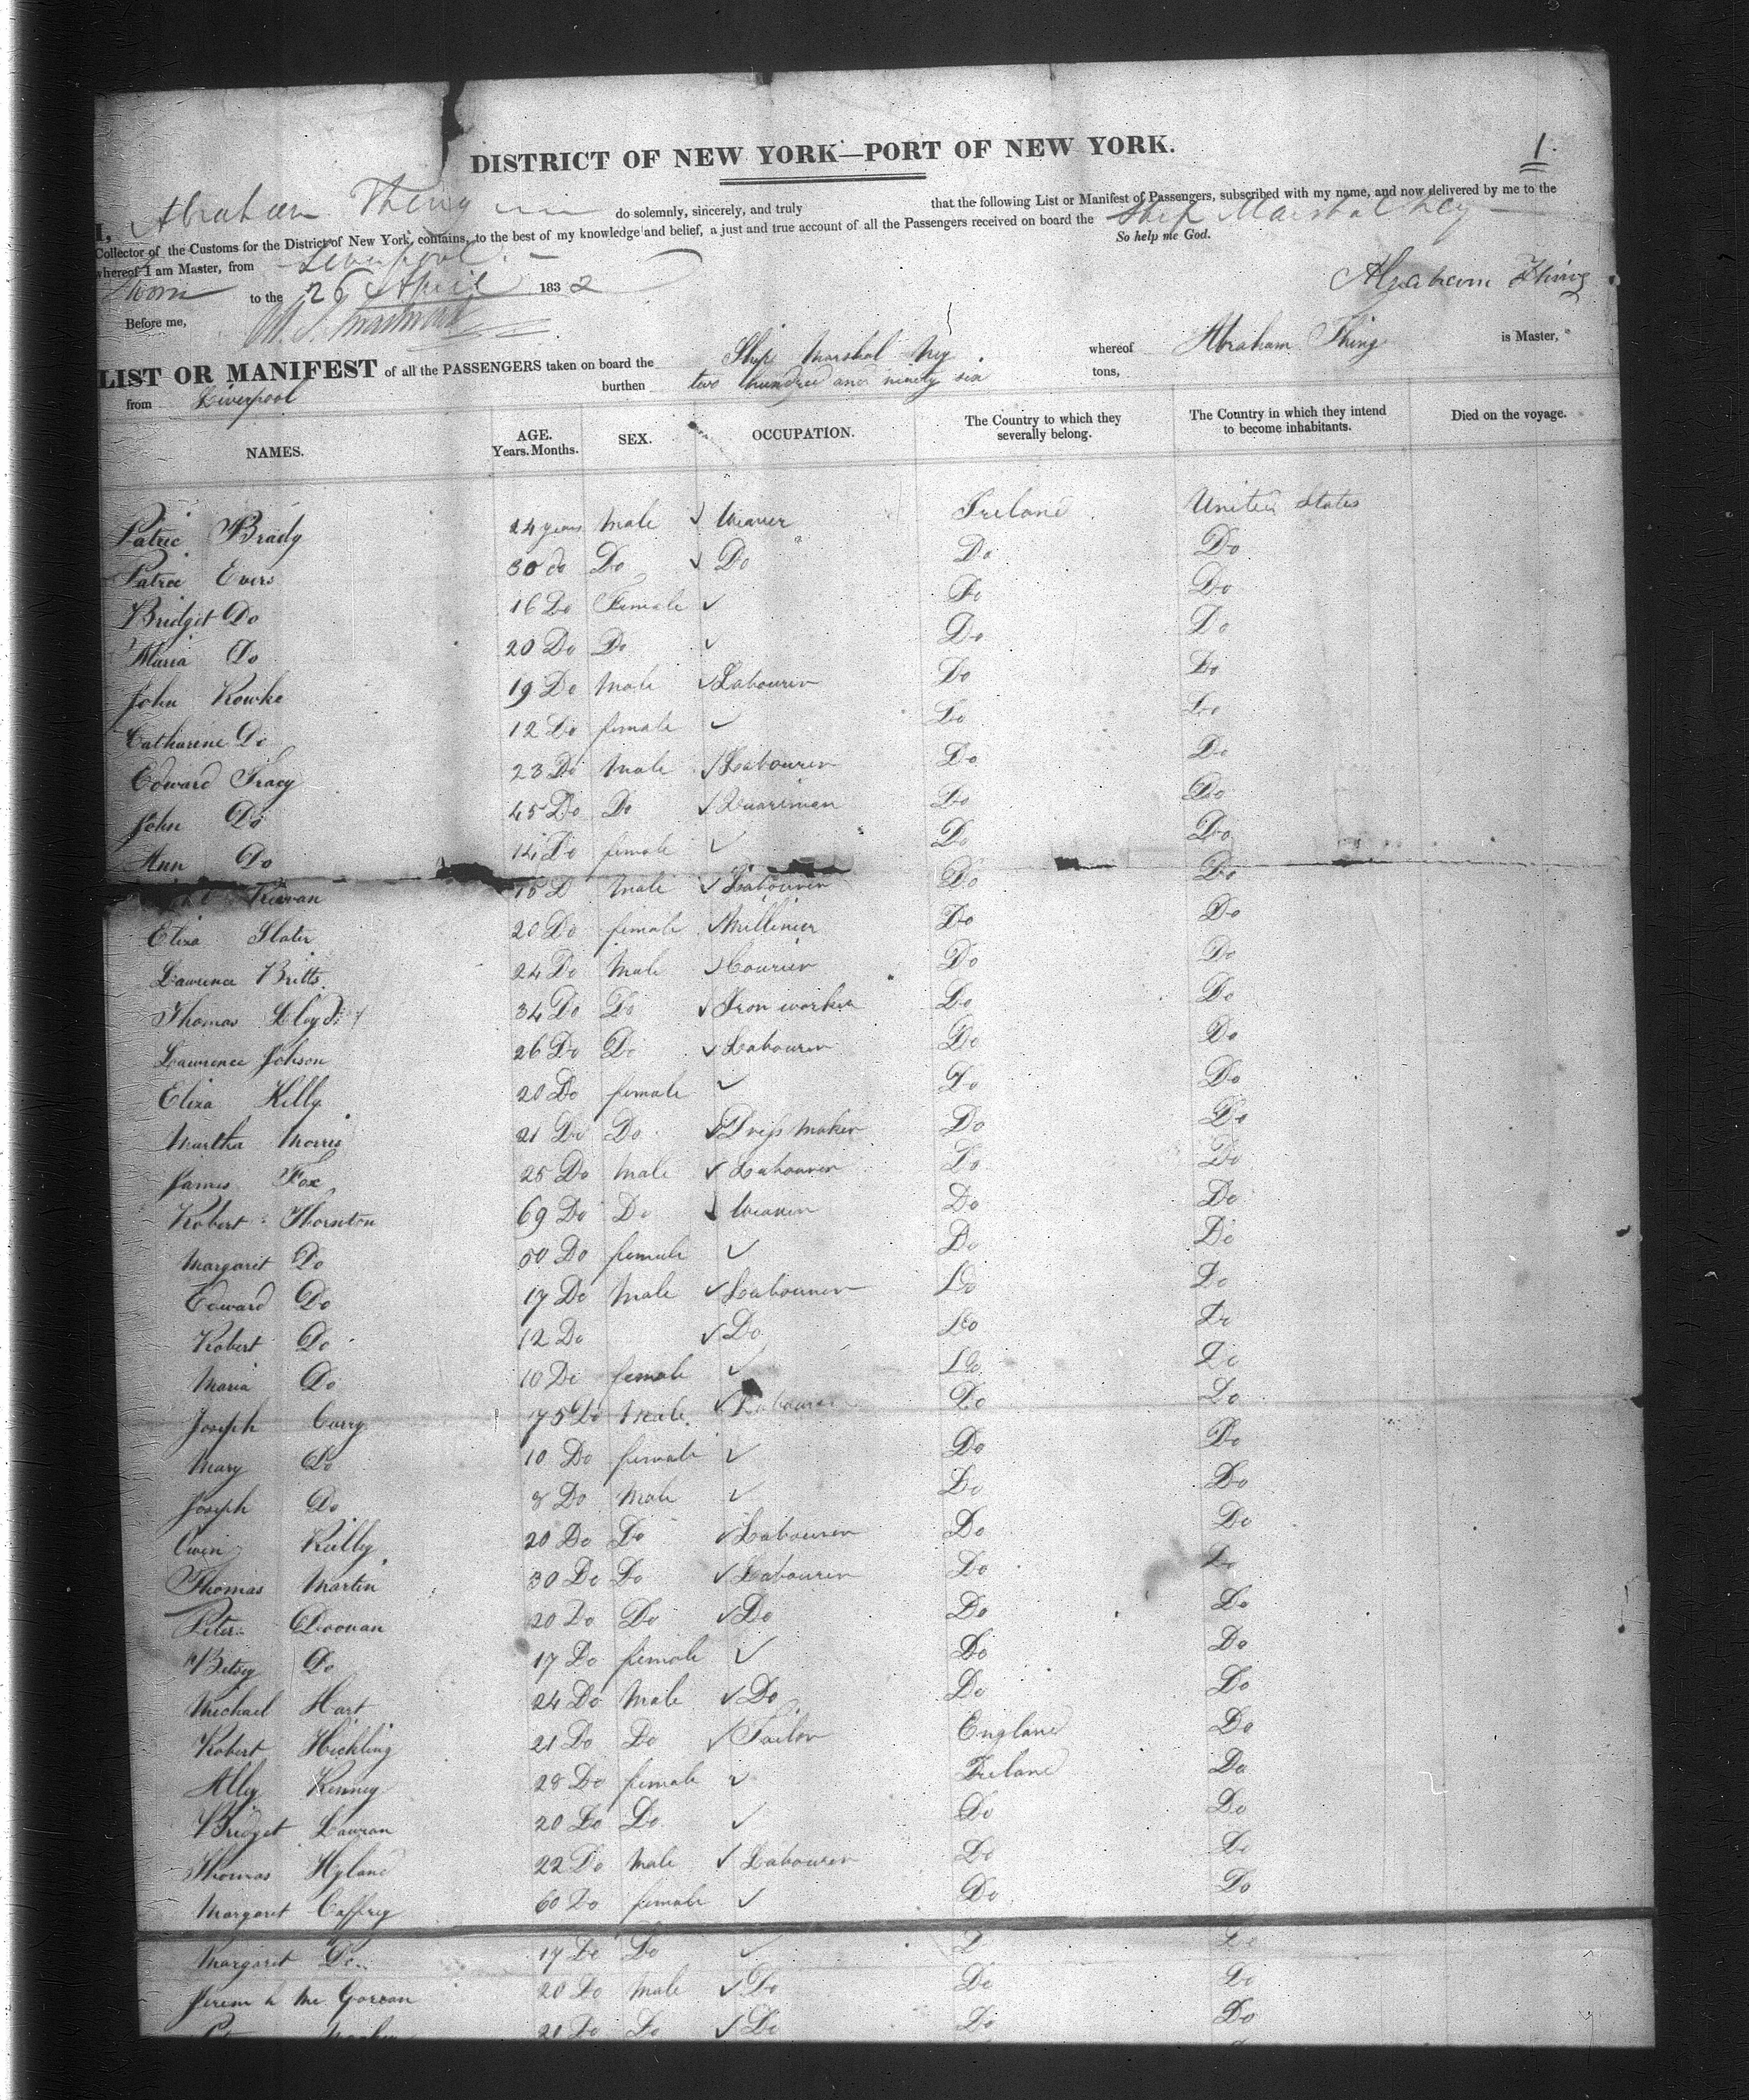 1
DISTRICT OF NEW YORK—PORT OF NEW YORK.
I, Abraham Thing do solemnly, sincerely, and truly that the following List or Manifest of Passengers, subscribed with my name, and now delivered by me to the
Collector of the Customs for the District of New York, contains, to the best of my knowledge and belief, a just and true account of all the Passengers received on board the Ship Marshal Ney
whereof I am Master, from Liverpool. So help me God.
Sworn to the 26 April 1832 Abraham Thing
Before me,
LIST OR MANIFEST of all the PASSENGERS taken on board the Ship Marshal Ney. whereof Abraham Thing is Master,
from Liverpool burthen two hundred and ninety six tons,
NAMES. AGE. Years. Months. SEX. OCCUPATION. The Country to which they severally belong. The Country in which they intend to become inhabitants. Died on the voyage.
Patric Brady 24 years Male Weaver Ireland United States
Patric Evers 30 do Do Do Do Do
Bridget Do 16 Do Female Do Do
Maria Do 20 Do Do Do Do
John Rowke 19 Do Male Labourer Do Do
Catharine Do 12 Do female Do Do
Edward Tracy 23 Do Male Labourer Do Do
John Do 45 Do Do Quariman Do Do
Ann Do 14 Do female Do Do
Kirwan 18 D Male Labourer Do Do
Eliza Slater 20 Do female Millinier Do Do
Lawrence Britts. 24 Do Male Courier Do Do
Thomas Lloyd 34 Do Do Iron worker Do Do
Lawrence Johson 26 Do Do Labourer Do Do
Eliza Killy 20 Do female Do Do
Martha Morris 21 Do Do Dress Maker Do Do
James Fox 25 Do Male Labourer Do Do
Robert Thornton 69 Do Do Weaver Do Do
Margaret Do 50 Do female Do Do
Edward Do 17 Do Male Labourer Do Do
Robert Do 12 Do Do Do Do
Maria Do 10 Do female Do Do
Joseph Carry 75 Do Male Labourer Do Do
Mary Do 10 Do female Do Do
Joseph Do 8 Do Male Do Do
Owen Reilly 20 Do Do Labourer Do Do
Thomas Martin 30 Do Do Labourer Do Do
Peter Doonan 20 Do Do Do Do Do
Betsey Do 17 Do female Do Do
Michael Hart 24 Do Male Do Do Do
Robert Hickling 21 Do Do Tailor England Do
Alley Kenney 28 Do female Ireland Do
Bridget Lawran 20 Do Do Do Do
Thomas Hyland 22 Do Male Labourer Do Do
Margaret Caffrey 60 Do female Do Do
Margaret Do 17 Do Do D Do
Mc Gorean 20 Do Male Do Do Do
21 Do Do Do Do Do